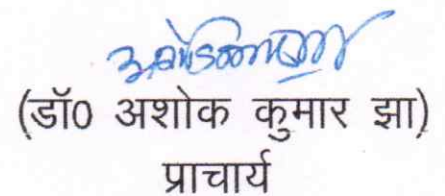 (डॉ0 अशोक कुमार झा)
प्राचार्य